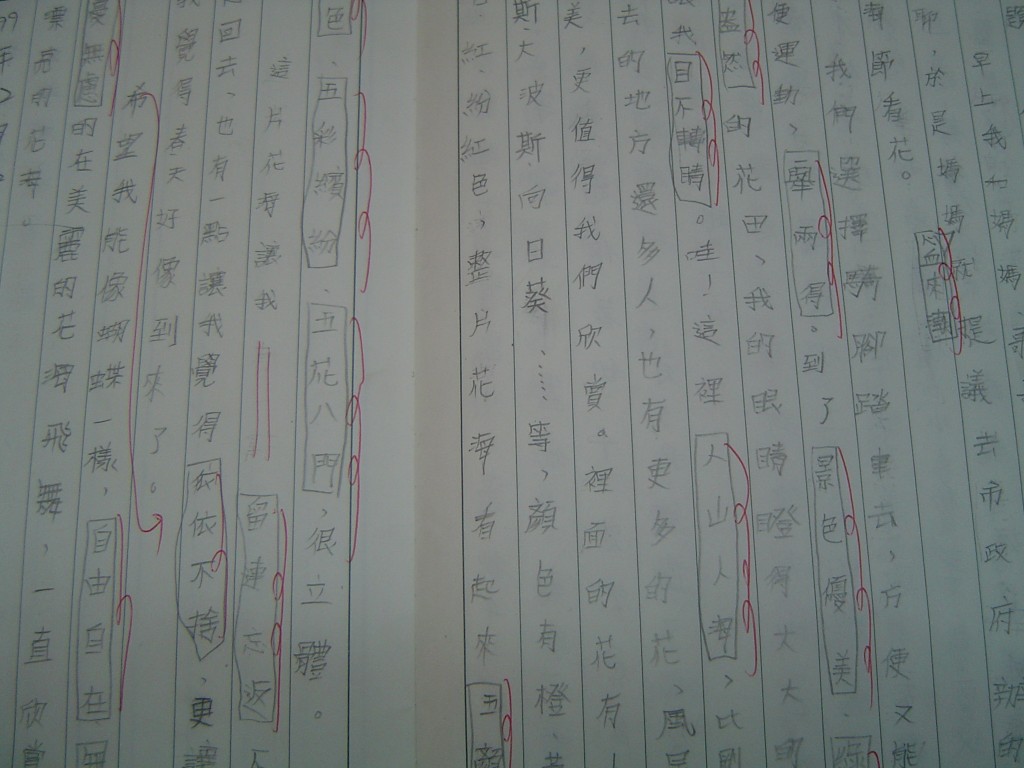 早上我和媽媽
聊，於是媽媽就提議去市政府辦的
有節看花。
我們選擇騎腳踏車去，方便又能
便運動，一舉兩得。到了景色優美、
盎然的花田、我的眼睛瞪得大大的
我目不轉睛。哇！這裡人山人海，比剛
去的地方還多人，也有更多的花、風
美，更值得我們欣賞。裡面的花有
斯、大波斯、向日葵……等，顏色有橙、
紅、紛紅色，整片花海看起來五顏
色、五彩繽紛、五花八門，很立體。
這片花海讓我留連忘返
回去，也有一點讓我覺得依依不捨，更讓
覺得春天好像到來了。
希望我能像蝴蝶一樣，自由自在
憂無慮的在美麗的花海飛舞，一直欣賞